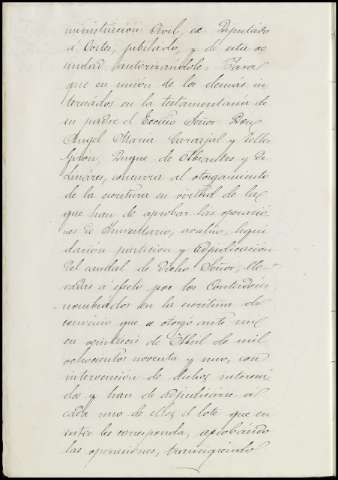 ministración Civil, ex Diputado
a Cortes, jubilado, y de esta ve
cindad autorizandole. Para
que en unión de los demás in
teresados en la testamentaria de
su padre el Excmo Señor Don
Angel Maria Carvajal y Tellez
Girón, Duque de Abrantes y de
Linares, concurra al otorgamiento
de la escritura en virtud de la
que han de aprobar las operacio
nes de Inventario, avaluo, liqui
dación particion y adjudicacion
del caudal de dicho Señor, lle
vadas a efecto por los Contadores
nombrados en la escritura de
convenio que se otorgó ante mi
en quince de Abril de mil
ochocientos noventa y uno, con
intervención de dichos interesa
dos y han de adjudicarse a
cada uno de ellos el lote que en
entre les corresponda, aprobando
las operaciones, transigiendo